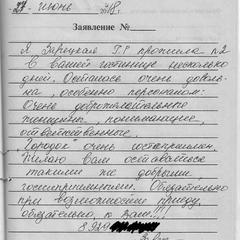 27 июнь 18г.
Заявление №
Я Зарецкая Г.Г прожила п.2
в вашей гостинице несколько
дней. Осталась очень доволь-
на, особенно персоналом:
Очень доброжелательные
женщины, понимающие,
ответственные.
"Городок" очень гостеприимен.
Желаю вам оставаться
такими же добрыми,
гостеприимными. Обязательно
при возможности приеду,
обязательно, к Вам!!!
8.929